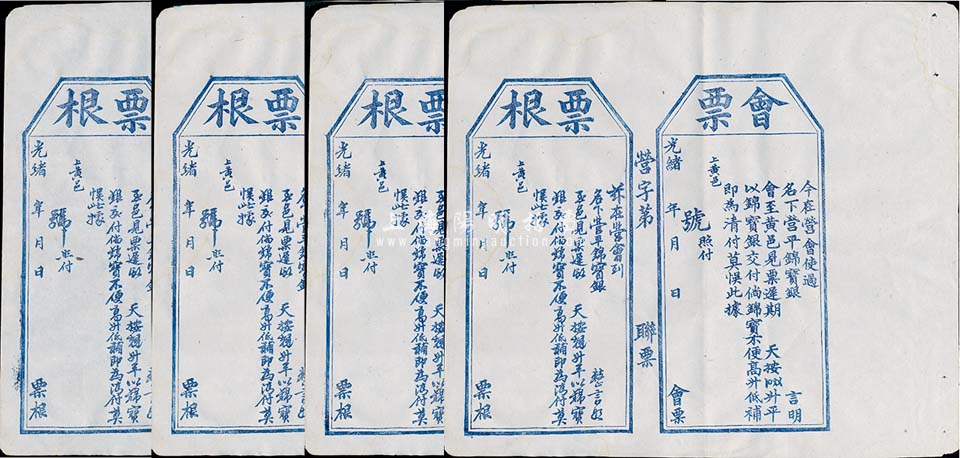 會票
今在營會使過
名下營平錦寶銀 言明
會至黃邑見票遲期 天按以升平
以錦寶銀交付倘錦寶不便高升低補
即為清付莫悞此據
上黃邑
號 照付
光緒 年 月 日
會票
營字第 聯票
票根
茲在營會到
名下營平錦寶銀
至邑見票遲的 天按
銀交付倘錦寶不便高升低補即為清付莫
悞此據
上黃邑
號 照付
光緒 年 月 日
票根
票根
至邑見票遲的 天按
銀交付倘錦寶不便高升低補即為清付莫
悞此據
上黃邑
號 照付
光緒 年 月 日
票根
票根
至邑見票遲的 天按
銀交付倘錦寶不便高升低補即為清付莫
悞此據
上黃邑
號 照付
光緒 年 月 日
票根
票根
至邑見票遲的 天按
銀交付倘錦寶不便高升低補即為清付莫
悞此據
上黃邑
號 照付
光緒 年 月 日
票根